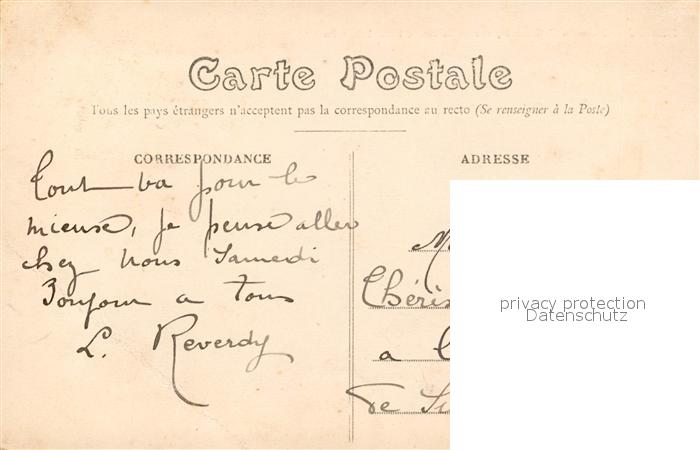 Carte Postale
Tous les pays étrangers n'acceptent pas la correspondance au recto (Se renseigner à la Poste)
CORRESPONDANCE
ADRESSE
Tout va pour le
mieux, je pense aller
chez nous Samedi
Bonjour a tous
L. Reverdy
a
de
privacy protection
Datenschutz